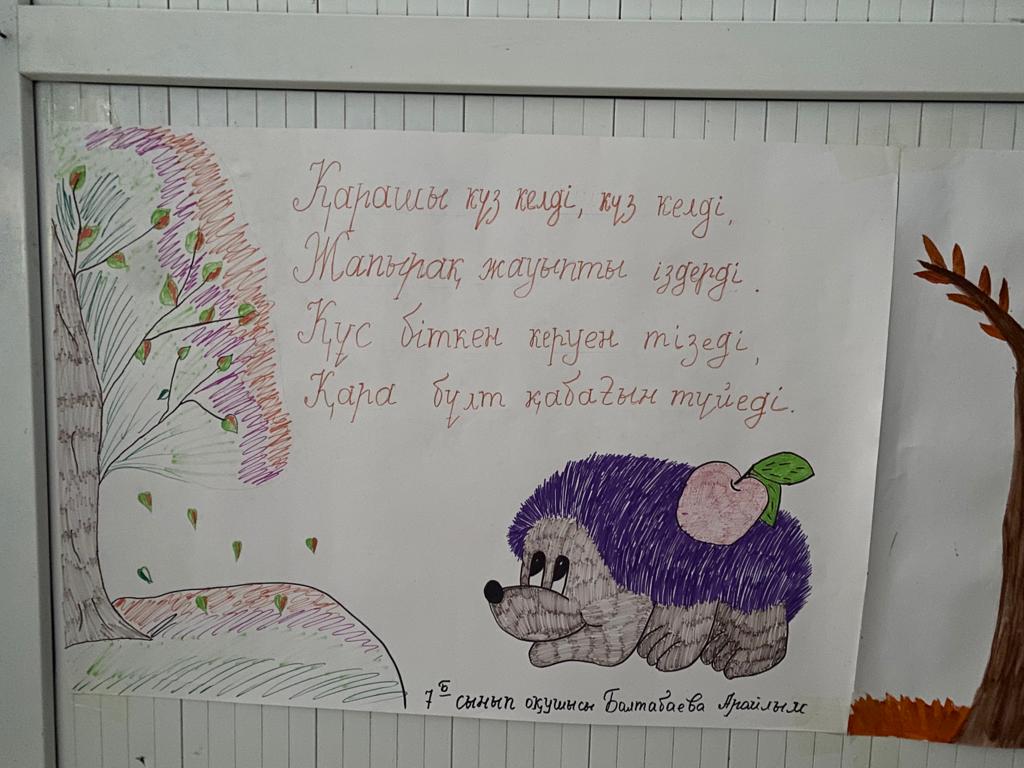 Қарашы күз келді, күз келді,
Жапырақ жауыпты іздерді.
Құс біткен керуен тізеді,
Қара бұлт қабағын түйеді.
7 Б сынып оқушысы Балтабаева Арайлым